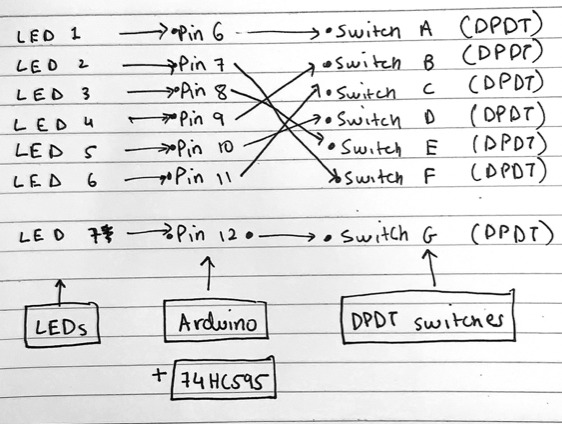 LED 1 Pin 6 Switch A (DPDT)
LED 2 Pin 7 Switch B (DPDT)
LED 3 Pin 8 Switch C (DPDT)
LED 4 Pin 9 Switch D (DPDT)
LED 5 Pin 10 Switch E (DPDT)
LED 6 Pin 11 Switch F (DPDT)
LED 7 Pin 12 Switch G (DPDT)
LEDs Arduino DPDT switches
+ 74HC595